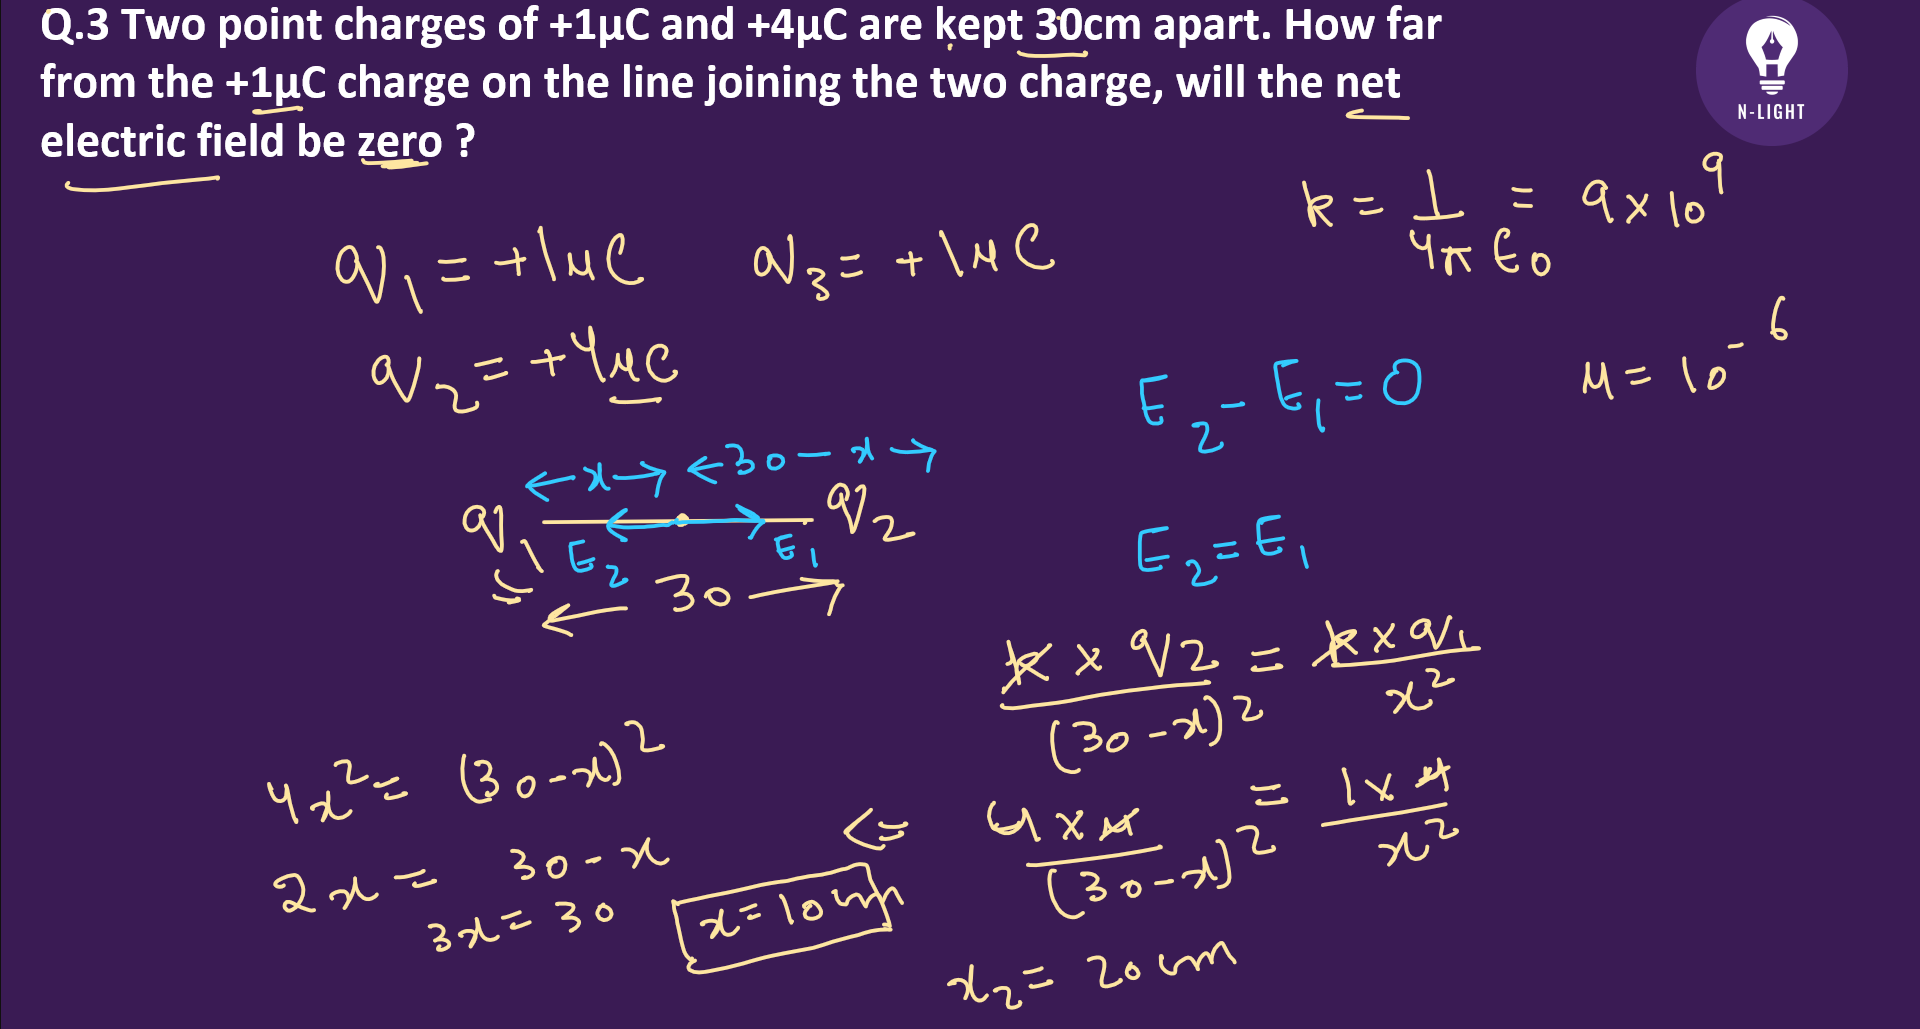 Q.3 Two point charges of +1μC and +4μC are kept 30cm apart. How far
from the +1μC charge on the line joining the two charge, will the net
electric field be zero ?
N-LIGHT
k = 1/4πε0 = 9×10^9
q1 = +1μC q3 = +1μC
q2 = +4μC
μ = 10^-6
E2 - E1 = 0
←x→ ←30-x→
q1 q2
E2 E1
← 30 →
E2 = E1
k×q2/(30-x)^2 = k×q1/x^2
4×μ/(30-x)^2 = 1×μ/x^2
<=
4x^2 = (30-x)^2
2x = 30-x
3x = 30
x = 10cm
x2 = 20cm